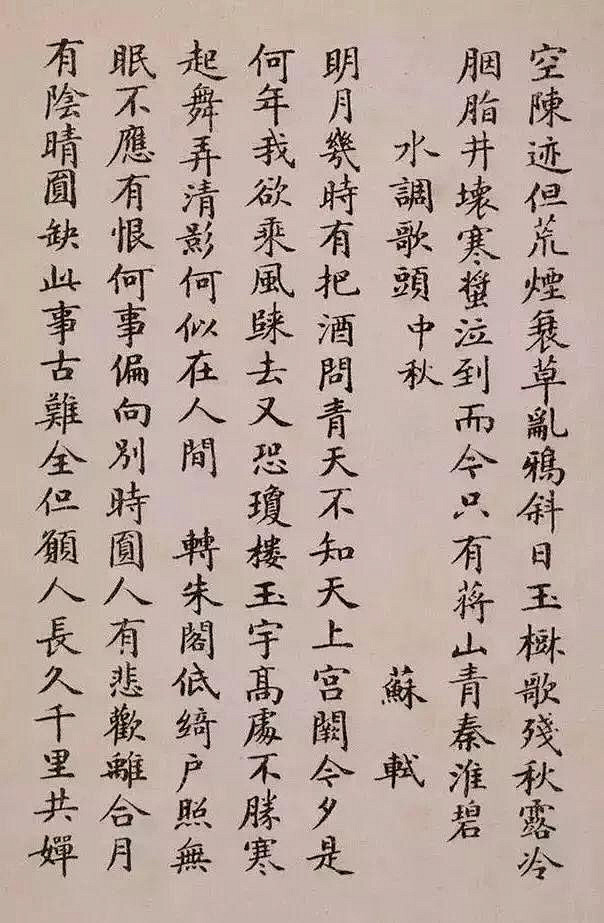 空陳迹但荒煙衰草亂鴉斜日玉樹歌殘秋露冷
胭脂井壞寒螿泣到而今只有蔣山青秦淮碧
水調歌頭 中秋 蘇軾
明月幾時有把酒問青天不知天上宮闕今夕是
何年我欲乘風歸去又恐瓊樓玉宇高處不勝寒
起舞弄清影何似在人間 轉朱閣低綺戶照無
眠不應有恨何事偏向別時圓人有悲歡離合月
有陰晴圓缺此事古難全但願人長久千里共嬋